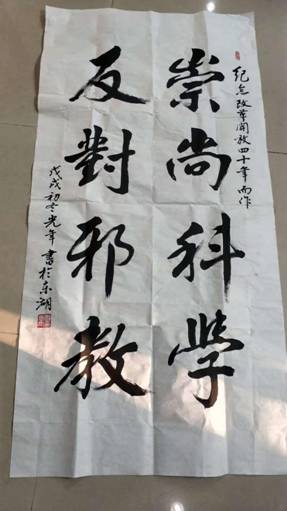 纪念改革開放四十年而作
崇尚科學
反對邪教
戊戌初冬光年書於东湖